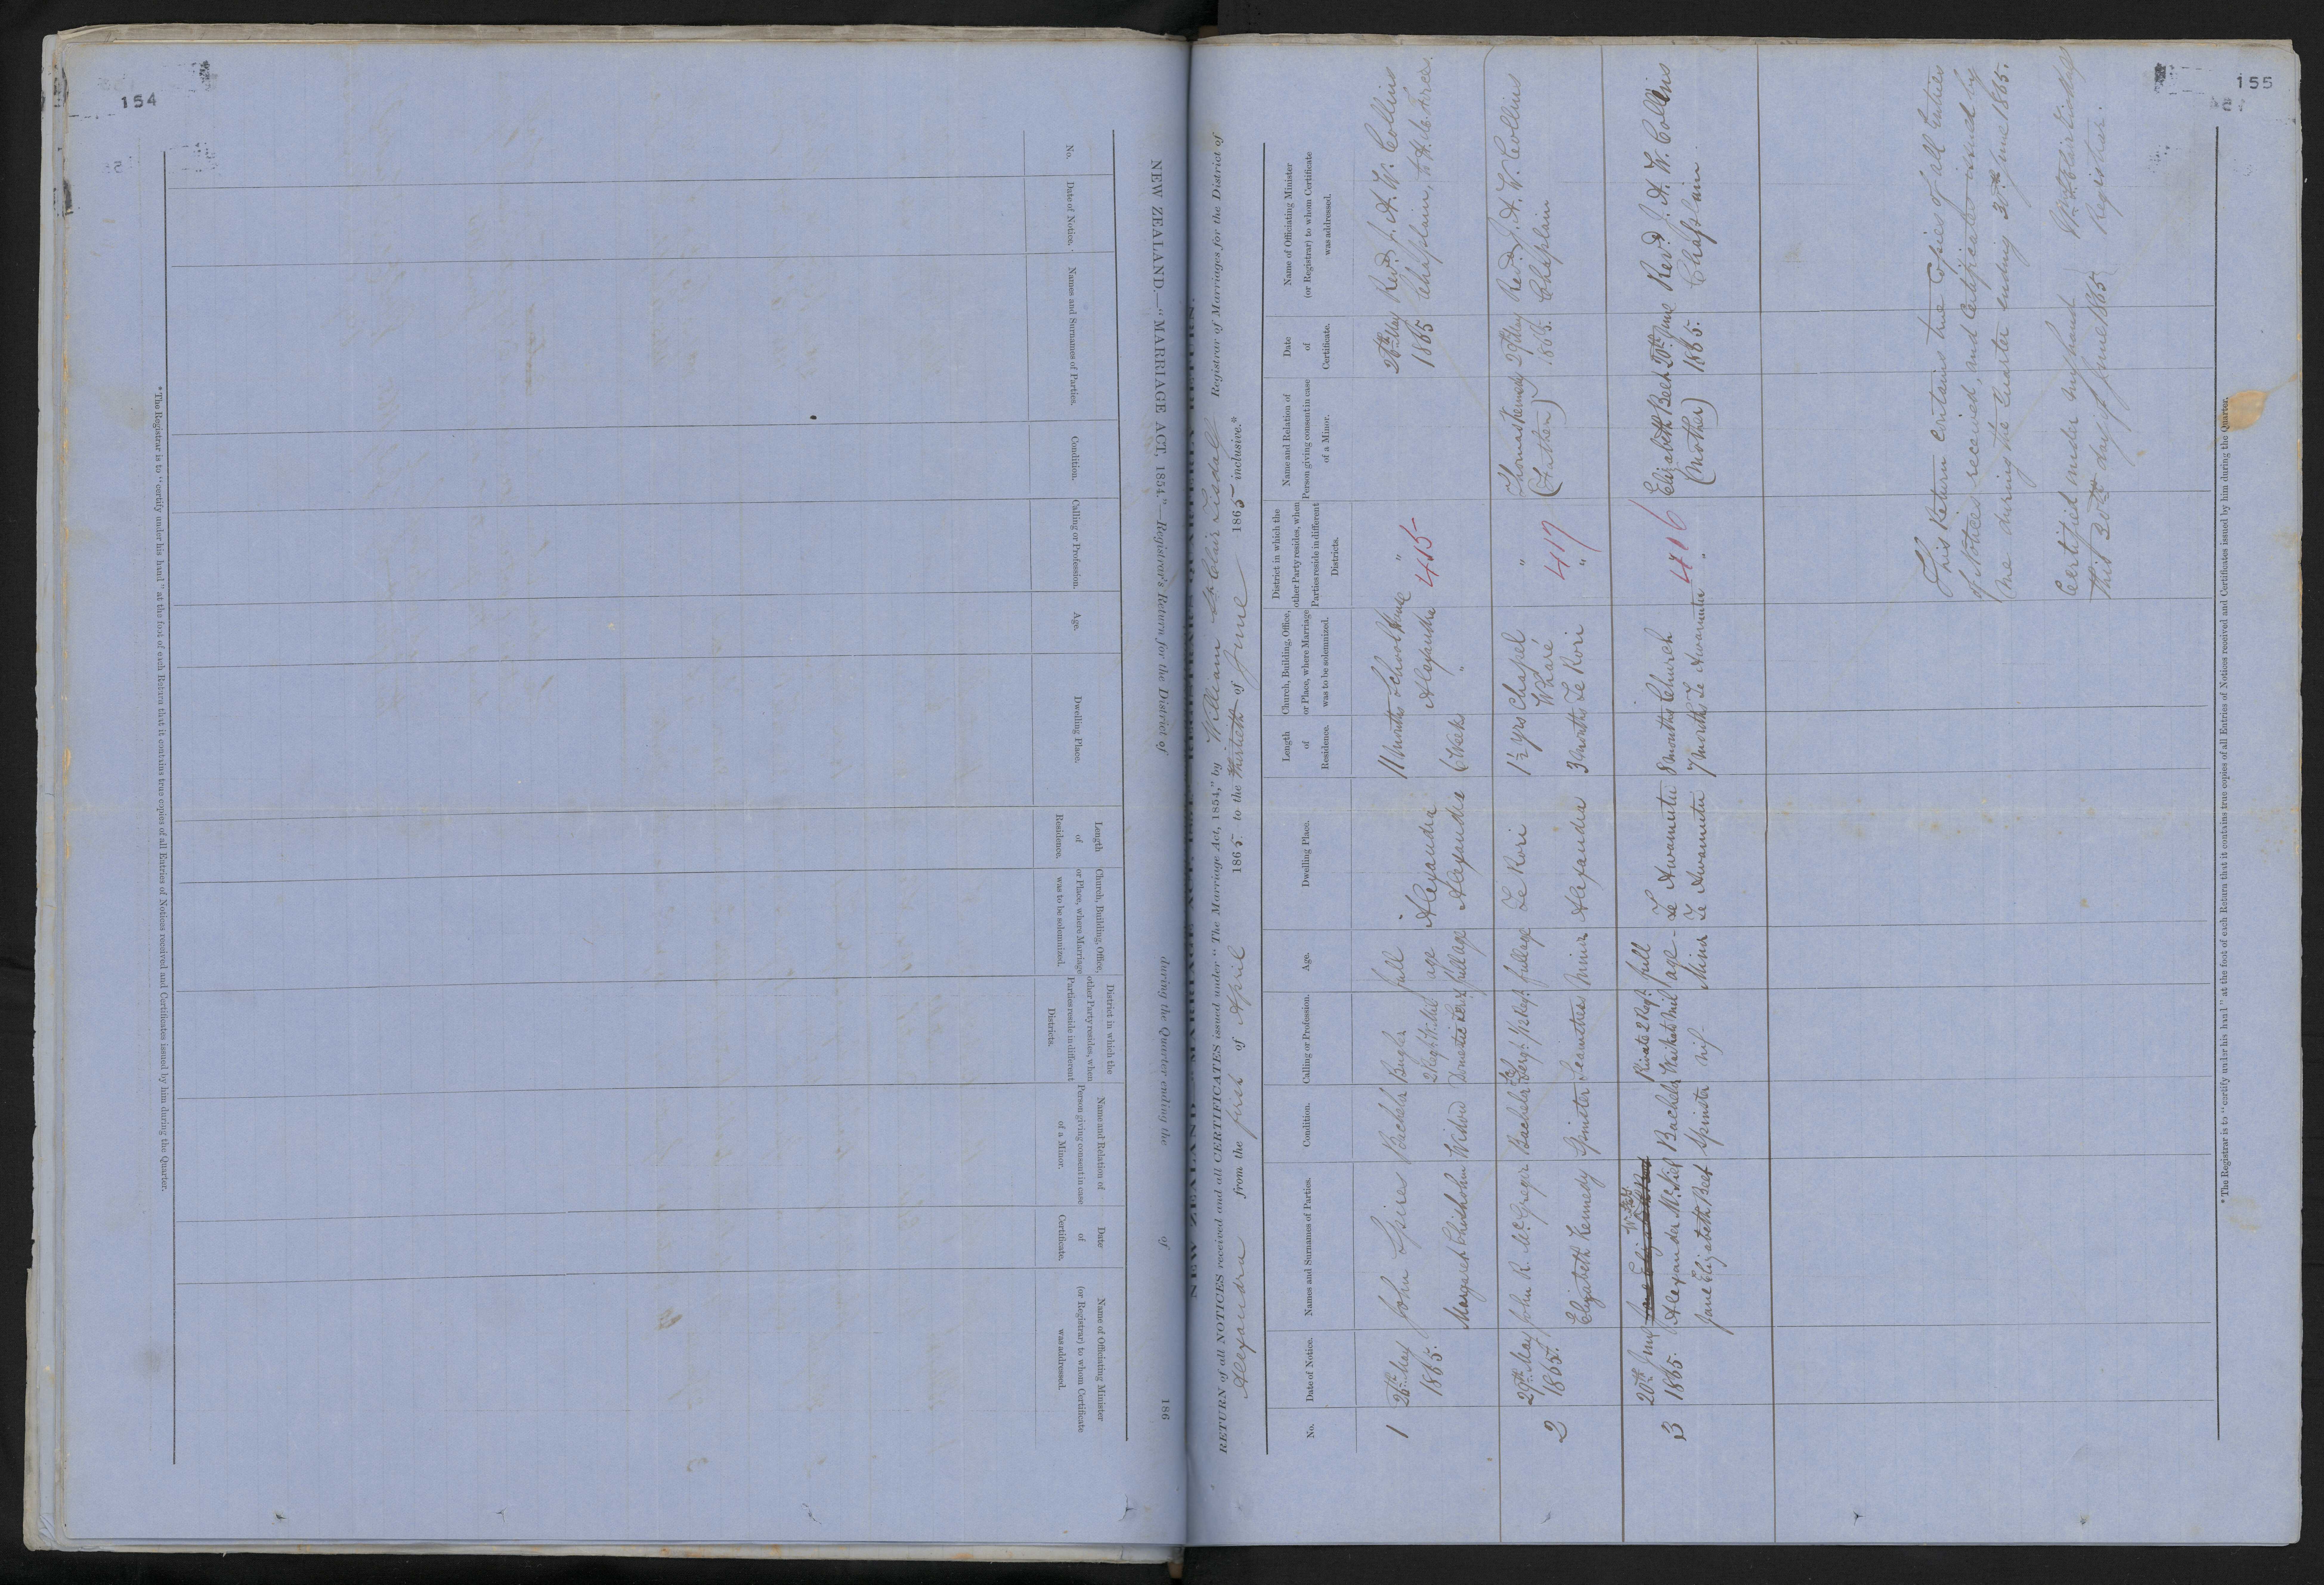 154
NEW ZEALAND.—"MARRIAGE ACT, 1854."—Registrar's Return for the District of during the Quarter ending the of 186
No.
Date of Notice.
Names and Surnames of Parties.
Condition.
Calling or Profession.
Age.
Dwelling Place.
Length
of
Residence.
Church, Building, Office,
or Place, where Marriage
was to be solemnized.
District in which the
other Party resides, when
Parties reside in different
Districts.
Name and Relation of
Person giving consent in case
of a Minor.
Date
of
Certificate.
Name of Officiating Minister
(or Registrar) to whom Certificate
was addressed.
*The Registrar is to "certify under his hand" at the foot of each Return that it contains true copies of all Entries of Notices received and Certificates issued by him during the Quarter.
155
RETURN of all NOTICES received and all CERTIFICATES issued under "The Marriage Act, 1854," by William St. Clair Tisdall Registrar of Marriages for the District of
Alexandra from the first of April 1865 to the thirtieth of June 1865 inclusive.*
No.
Date of Notice.
Names and Surnames of Parties.
Condition.
Calling or Profession.
Age.
Dwelling Place.
Length
of
Residence.
Church, Building, Office,
or Place, where Marriage
was to be solemnized.
District in which the
other Party resides, when
Parties reside in different
Districts.
Name and Relation of
Person giving consent in case
of a Minor.
Date
of
Certificate.
Name of Officiating Minister
(or Registrar) to whom Certificate
was addressed.
1
26th May
1865.
John Spires
Margaret Chisholm
Bachelor
Widow
Bugler
2 Regt. W. Mil
Domestic Serv.
full
age
full age
Alexandra
Alexandra
11 Months
6 Weeks
School House
Alexandra
"
"
415
26th May
1865
Revd. J. A. W. Collins
Chaplain, to H. M. Forces.
2
29th May
1865.
John R. McGregor
Elizabeth Kennedy
Bachelor
Spinster
Sergt. Wk Regt.
Seamstress
full age
Minor
Te Rori
Alexandra
1½ yrs
3 Months
Chapel
Wharé
Te Rori
"
417
"
Thomas Kennedy
(Father)
29th May
1865.
Revd. J. A. W. Collins
Chaplain
3
20th June
1865.
Alexander McNiel
Jane Elizabeth Beet
Bachelor
Spinster
Private 2 Regt.
Waikato Mil
nil
full
age
Minor
Te Awamutu
Te Awamutu
8 Months
7 Months
Church
Te Awamutu
416
"
Elizabeth Beet
(Mother)
20th June
1865.
Revd. J. A. W. Collins
Chaplain.
This Return contains true Copies of all Entries
of Notices received, and Certificates issued by
me during the Quarter ending 30th June 1865.
Certified under my hand
this 30th day of June 1865
Wm. St. Clair Tisdall
Registrar.
*The Registrar is to "certify under his hand" at the foot of each Return that it contains true copies of all Entries of Notices received and Certificates issued by him during the Quarter.